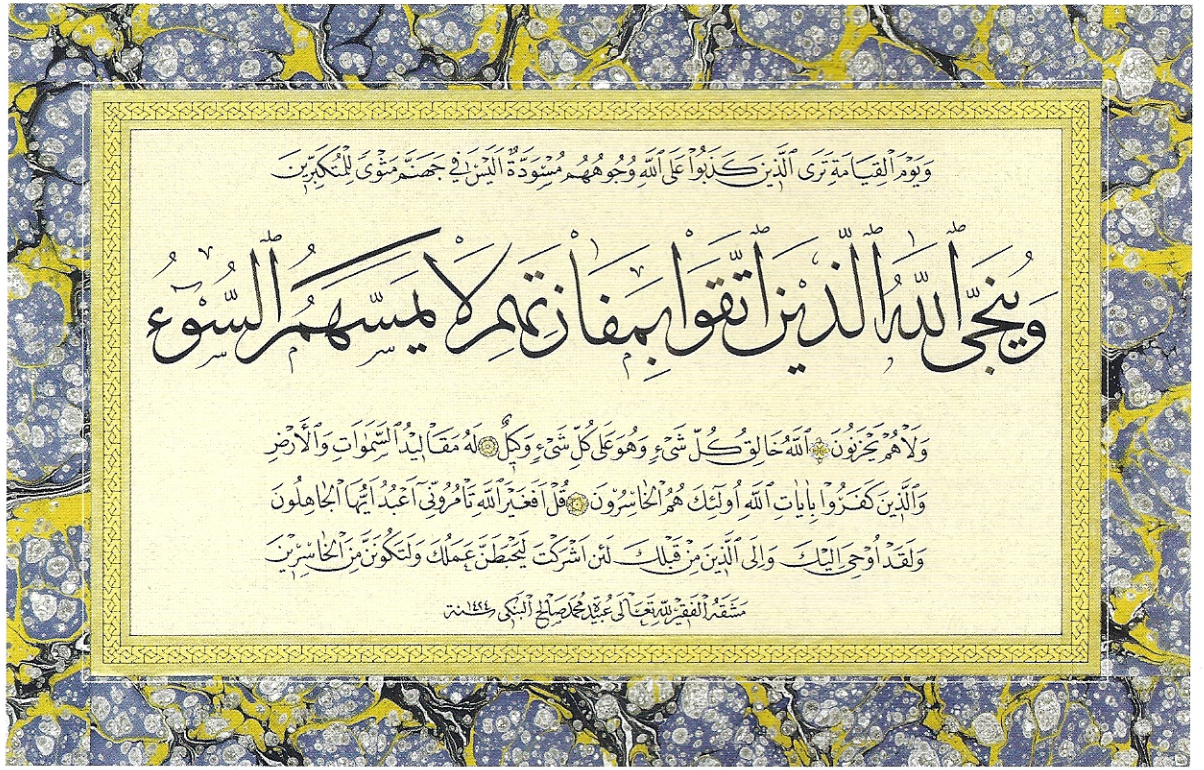 وَيَوْمَ الْقِيَامَةِ تَرَى الَّذِينَ كَذَبُوا عَلَى اللَّهِ وُجُوهُهُمْ مُسْوَدَّةٌ اَلَيْسَ فِي جَهَنَّمَ مَثْوًى لِلْمُتَكَبِّرِينَ
وَيُنَجِّى اللَّهُ الَّذِينَ اتَّقَوْا بِمَفَازَتِهِمْ لَا يَمَسُّهُمُ السُّوْءُ
وَلَا هُمْ يَحْزَنُونَ ۝ اَللَّهُ خَالِقُ كُلِّ شَىْءٍ وَهُوَ عَلَى كُلِّ شَىْءٍ وَكِيلٌ ۝ لَهُ مَقَالِيدُ السَّمٰوَاتِ وَالْاَرْضِ
وَالَّذِينَ كَفَرُوا بِاٰيَاتِ اللَّهِ اُولٰئِكَ هُمُ الْخَاسِرُونَ ۝ قُلْ اَفَغَيْرَ اللَّهِ تَاْمُرُونِّى اَعْبُدُ اَيُّهَا الْجَاهِلُونَ
وَلَقَدْ اُوحِىَ اِلَيْكَ وَاِلَى الَّذِينَ مِنْ قَبْلِكَ لَئِنْ اَشْرَكْتَ لَيَحْبَطَنَّ عَمَلُكَ وَلَتَكُونَنَّ مِنَ الْخَاسِرِينَ
مَشَقَهُ الْفَقِيرُ لِلّٰهِ تَعَالَى عُبَيْدَه مُحَمَّد صَالِح الْبَنْكِى سنة ١٤٢٤